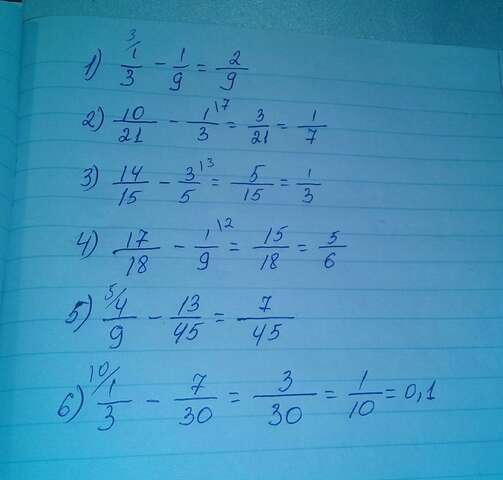 1) ³⁄ 1/3 - 1/9 = 2/9
2) 10/21 - 1/3 \7 = 3/21 = 1/7
3) 14/15 - 3/5 \3 = 5/15 = 1/3
4) 17/18 - 1/9 \2 = 15/18 = 5/6
5) ⁵⁄ 4/9 - 13/45 = 7/45
6) ¹⁰⁄ 1/3 - 7/30 = 3/30 = 1/10 = 0,1